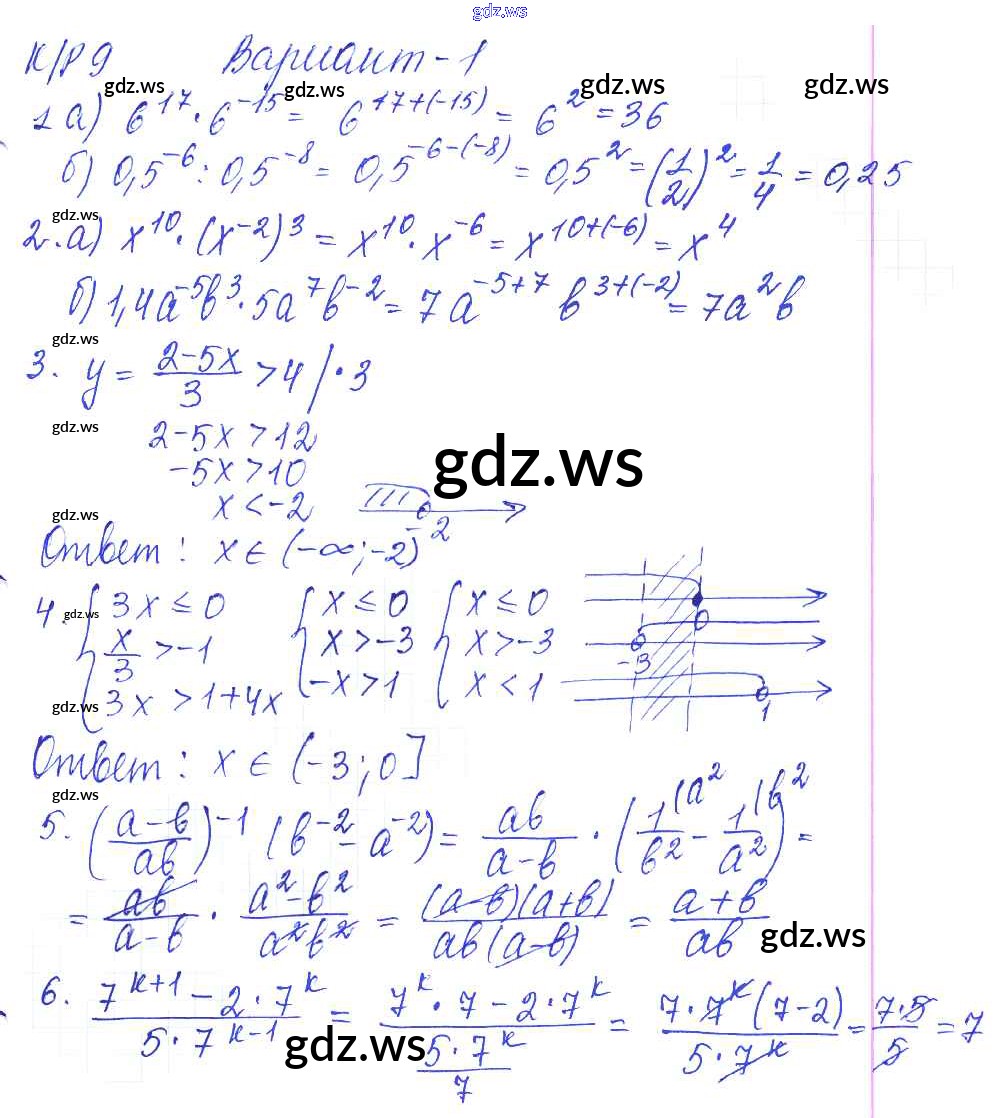 gdz.ws
К/Р 9 Вариант-1
gdz.ws gdz.ws gdz.ws gdz.ws
1 а) 6^17 · 6^-15 = 6^17+(-15) = 6^2 = 36
б) 0,5^-6 : 0,5^-8 = 0,5^-6-(-8) = 0,5^2 = (1/2)^2 = 1/4 = 0,25
gdz.ws
2. а) x^10 · (x^-2)^3 = x^10 · x^-6 = x^10+(-6) = x^4
б) 1,4a^-5b^3 · 5a^7b^-2 = 7a^-5+7 b^3+(-2) = 7a^2b
gdz.ws
3. y = (2-5x)/3 > 4 / · 3
gdz.ws
2-5x > 12
-5x > 10
gdz.ws
x < -2
-2
gdz.ws
Ответ: x ∈ (-∞; -2)
4. { 3x ≤ 0 { x ≤ 0 { x ≤ 0
0
gdz.ws
x/3 > -1 x > -3 x > -3
-3
3x > 1+4x -x > 1 x < 1
1
gdz.ws
Ответ: x ∈ (-3; 0]
gdz.ws
5. ((a-b)/ab)^-1 (b^-2 - a^-2) = ab/(a-b) · (1/b^2 (a^2 - 1/a^2 (b^2) =
= ab/(a-b) · (a^2-b^2)/(a^2b^2) = (a-b)(a+b)/(ab(a-b)) = (a+b)/ab
gdz.ws
6. (7^k+1 - 2·7^k)/(5·7^k-1) = (7^k · 7 - 2·7^k)/(5·7^k/7) = 7·7^k(7-2)/(5·7^k) = 7·5/5 = 7
gdz.ws gdz.ws